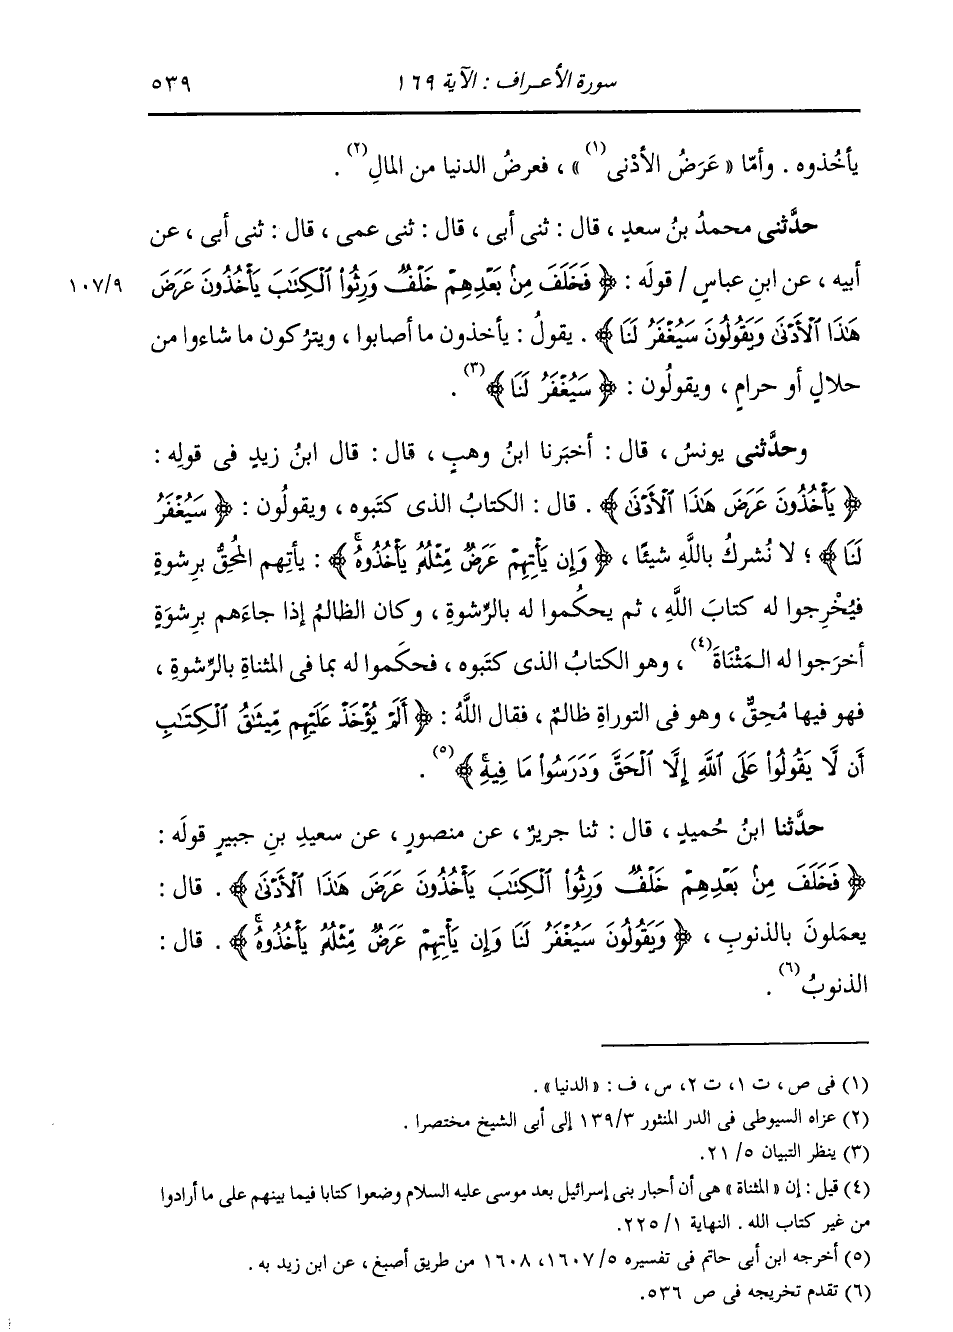 سورة الأعراف : الآية ١٦٩ ٥٣٩
يأخُذوه . وأمّا « عَرَضُ الأدْنى(١) » ، فعرضُ الدنيا من المالِ(٢) .
حدَّثنى محمدُ بنُ سعدٍ ، قال : ثنى أبى ، قال : ثنى عمى ، قال : ثنى أبى ، عن
أبيه ، عن ابنِ عباسٍ / قولَه : ﴿ فَخَلَفَ مِنۢ بَعْدِهِمْ خَلْفٌ وَرِثُوا۟ ٱلْكِتَـٰبَ يَأْخُذُونَ عَرَضَ ١٠٧/٩
هَـٰذَا ٱلْأَدْنَىٰ وَيَقُولُونَ سَيُغْفَرُ لَنَا ﴾ . يقولُ : يأخذون ما أصابوا ، ويترُكون ما شاءوا من
حلالٍ أو حرامٍ ، ويقولُون : ﴿ سَيُغْفَرُ لَنَا ﴾(٣) .
وحدَّثنى يونسُ ، قال : أخبَرنا ابنُ وهبٍ ، قال : قال ابنُ زيدٍ فى قولِه :
﴿ يَأْخُذُونَ عَرَضَ هَـٰذَا ٱلْأَدْنَىٰ ﴾ . قال : الكتابُ الذى كتَبوه ، ويقولُون : ﴿ سَيُغْفَرُ
لَنَا ﴾ ؛ لا نُشركُ باللَّهِ شيئًا ، ﴿ وَإِن يَأْتِهِمْ عَرَضٌ مِّثْلُهُۥ يَأْخُذُوهُ ۚ ﴾ : يأتِهم المُحِقُّ برِشوةٍ
فيُخْرِجوا له كتابَ اللَّهِ ، ثم يحكُموا له بالرِّشوةِ ، وكان الظالمُ إذا جاءَهم برِشوَةٍ
أخرَجوا له المَثْنَاةَ(٤) ، وهو الكتابُ الذى كتَبوه ، فحكَموا له بما فى المثناةِ بالرِّشوةِ ،
فهو فيها مُحِقٌّ ، وهو فى التوراةِ ظالمٌ ، فقال اللَّهُ : ﴿ أَلَمْ يُؤْخَذْ عَلَيْهِم مِّيثَـٰقُ ٱلْكِتَـٰبِ
أَن لَّا يَقُولُوا۟ عَلَى ٱللَّهِ إِلَّا ٱلْحَقَّ وَدَرَسُوا۟ مَا فِيهِ ۗ ﴾(٥) .
حدَّثنا ابنُ حُميدٍ ، قال : ثنا جريرٌ ، عن منصورٍ ، عن سعيدِ بنِ جبيرٍ قولَه :
﴿ فَخَلَفَ مِنۢ بَعْدِهِمْ خَلْفٌ وَرِثُوا۟ ٱلْكِتَـٰبَ يَأْخُذُونَ عَرَضَ هَـٰذَا ٱلْأَدْنَىٰ ﴾ . قال :
يعمَلونَ بالذنوبِ ، ﴿ وَيَقُولُونَ سَيُغْفَرُ لَنَا وَإِن يَأْتِهِمْ عَرَضٌ مِّثْلُهُۥ يَأْخُذُوهُ ۚ ﴾ . قال :
الذنوبُ(٦) .
(١) فى ص ، ت ١، ت ٢، س ، ف : « الدنيا » .
(٢) عزاه السيوطى فى الدر المنثور ١٣٩/٣ إلى أبى الشيخ مختصرا .
(٣) ينظر التبيان ٥/ ٢١.
(٤) قيل : إن « المثناة » هى أن أحبار بنى إسرائيل بعد موسى عليه السلام وضعوا كتابا فيما بينهم على ما أرادوا
من غير كتاب الله . النهاية ١/ ٢٢٥.
(٥) أخرجه ابن أبى حاتم فى تفسيره ٥/ ١٦٠٧، ١٦٠٨ من طريق أصبغ ، عن ابن زيد به .
(٦) تقدم تخريجه فى ص ٥٣٦.